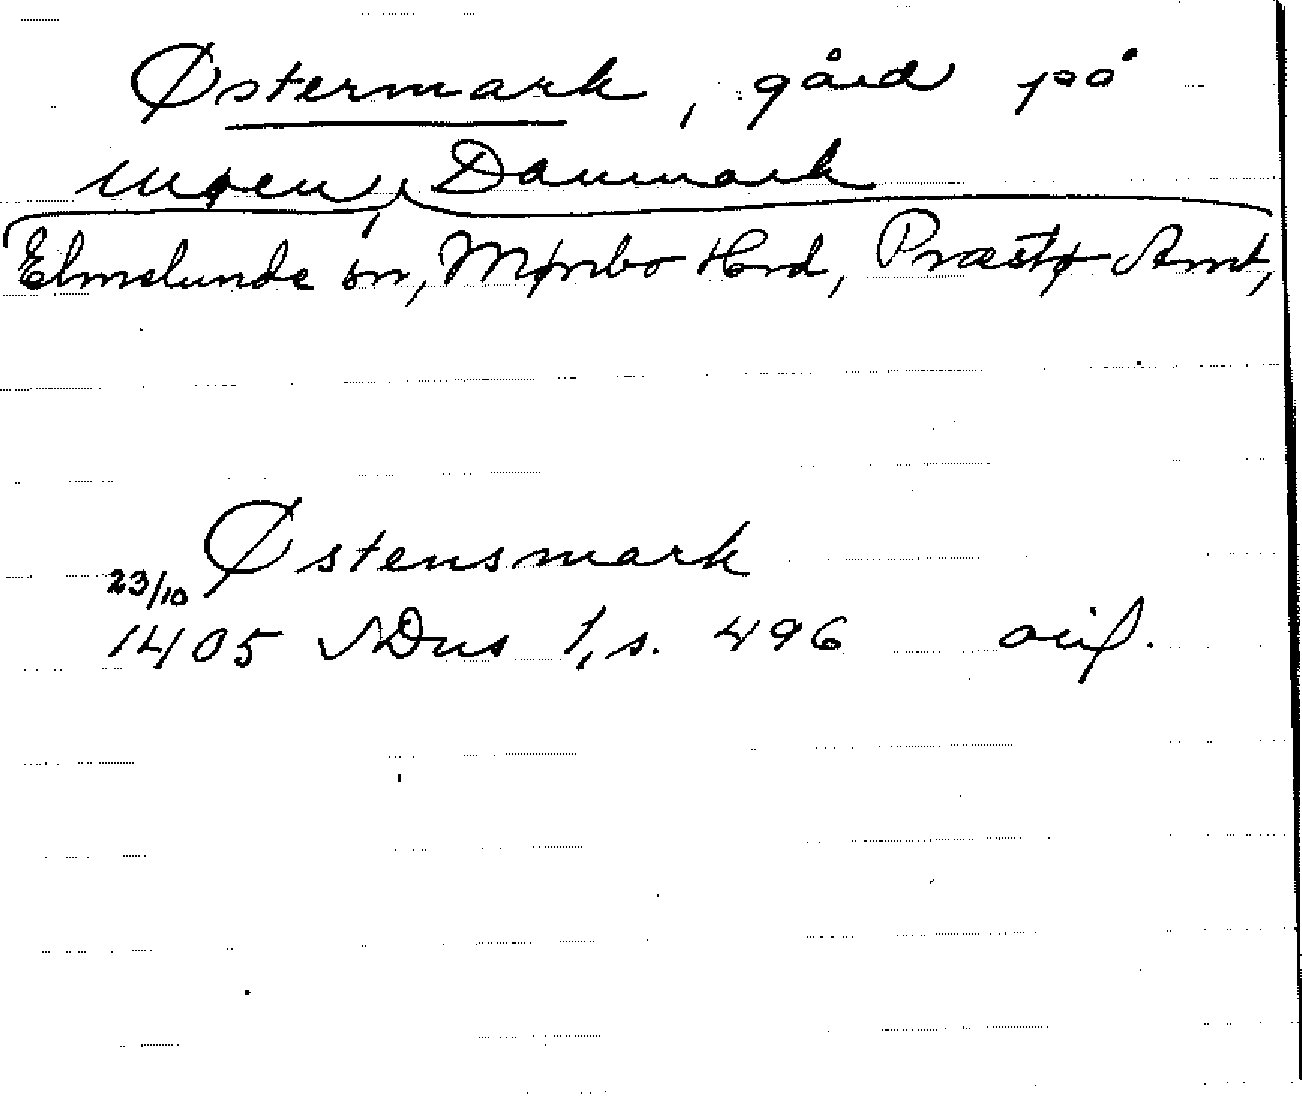 Østermark, gård på
Møen, Danmark
Elmelunde sn, Mønbo Hrd, Præstø Amt,
Østensmark
23/10
1405 SDns 1, s. 496 orig.